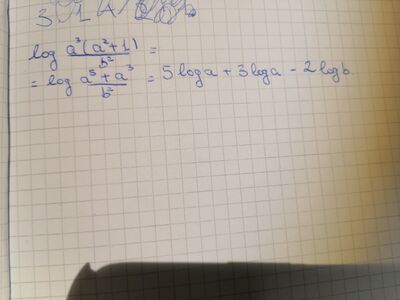 log a³(a²+1)/b² =
= log a⁵+a³/b² = 5 log a + 3 log a - 2 log b